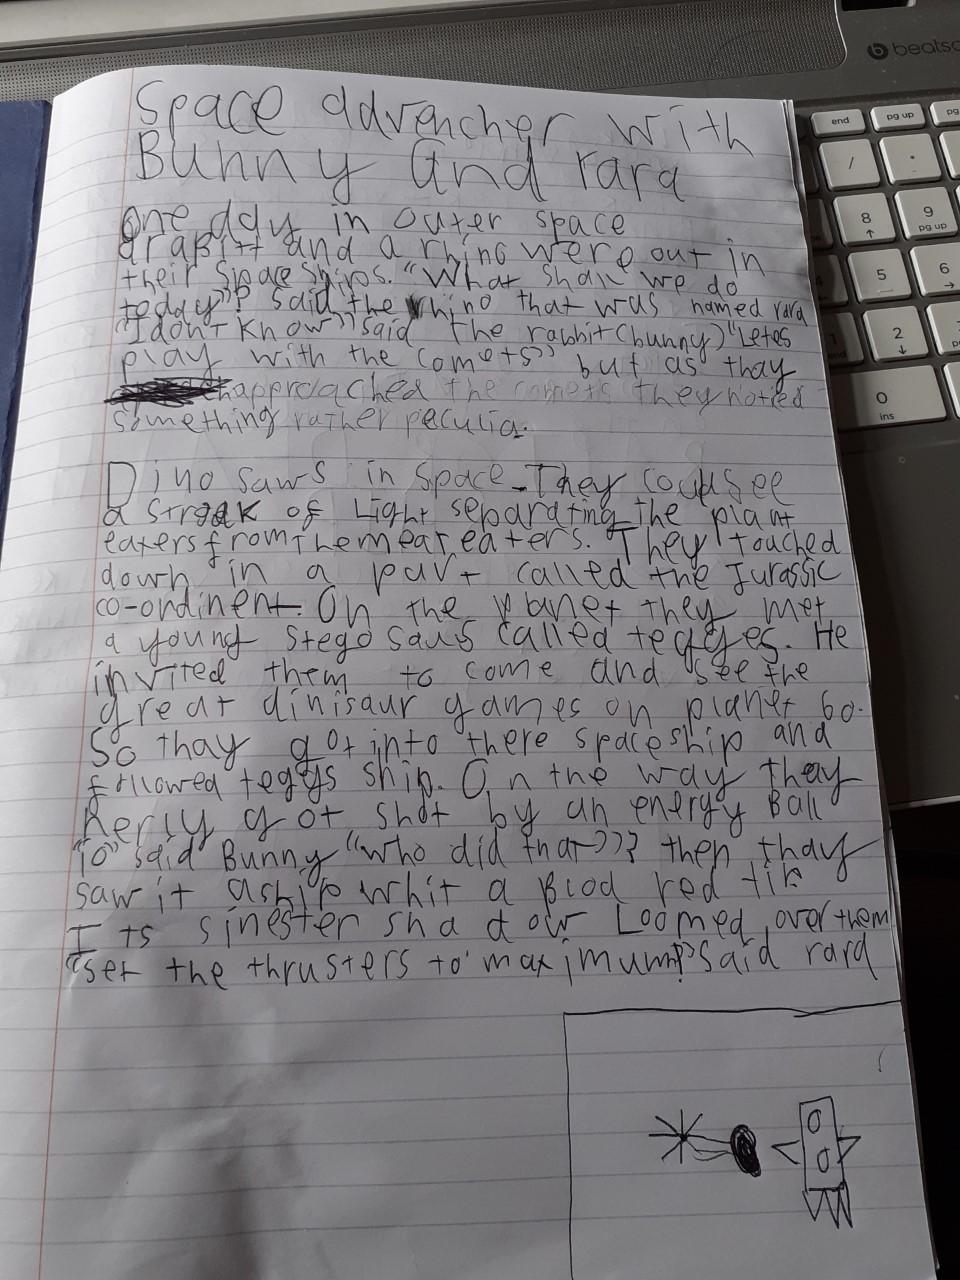 Space advencher with
Bunny and rara
One day in outer space
a rabitt and a rhino were out in
their Space Ships. "What shall we do
today"? said the rhino that was named rara
"I don't know" said the rabbit (bunny) "Letes
play with the comets" but as thay
approached the comets they notied
something rather peculia.
Dino saws in Space. They coud see
a streak of Light separating the plant
eaters from the meat eaters. They touched
down in a part called the Jurassic
co-ordinent. On the planet they met
a young stego saus called tegges. He
invited them to come and see the
great dinisaur games on planet 60.
So thay got into there spaceship and
followed teggs ship. On the way they
nerly got shot by an energy Ball
"io" said Bunny "who did that"? then thay
saw it aship whit a Blod red tin
Its sinester shadow Loomed over them
"set the thrusters to maximum!" said rara
beats
end
pg up
pg
/
*
8
9
pg up
5
6
2
0
ins